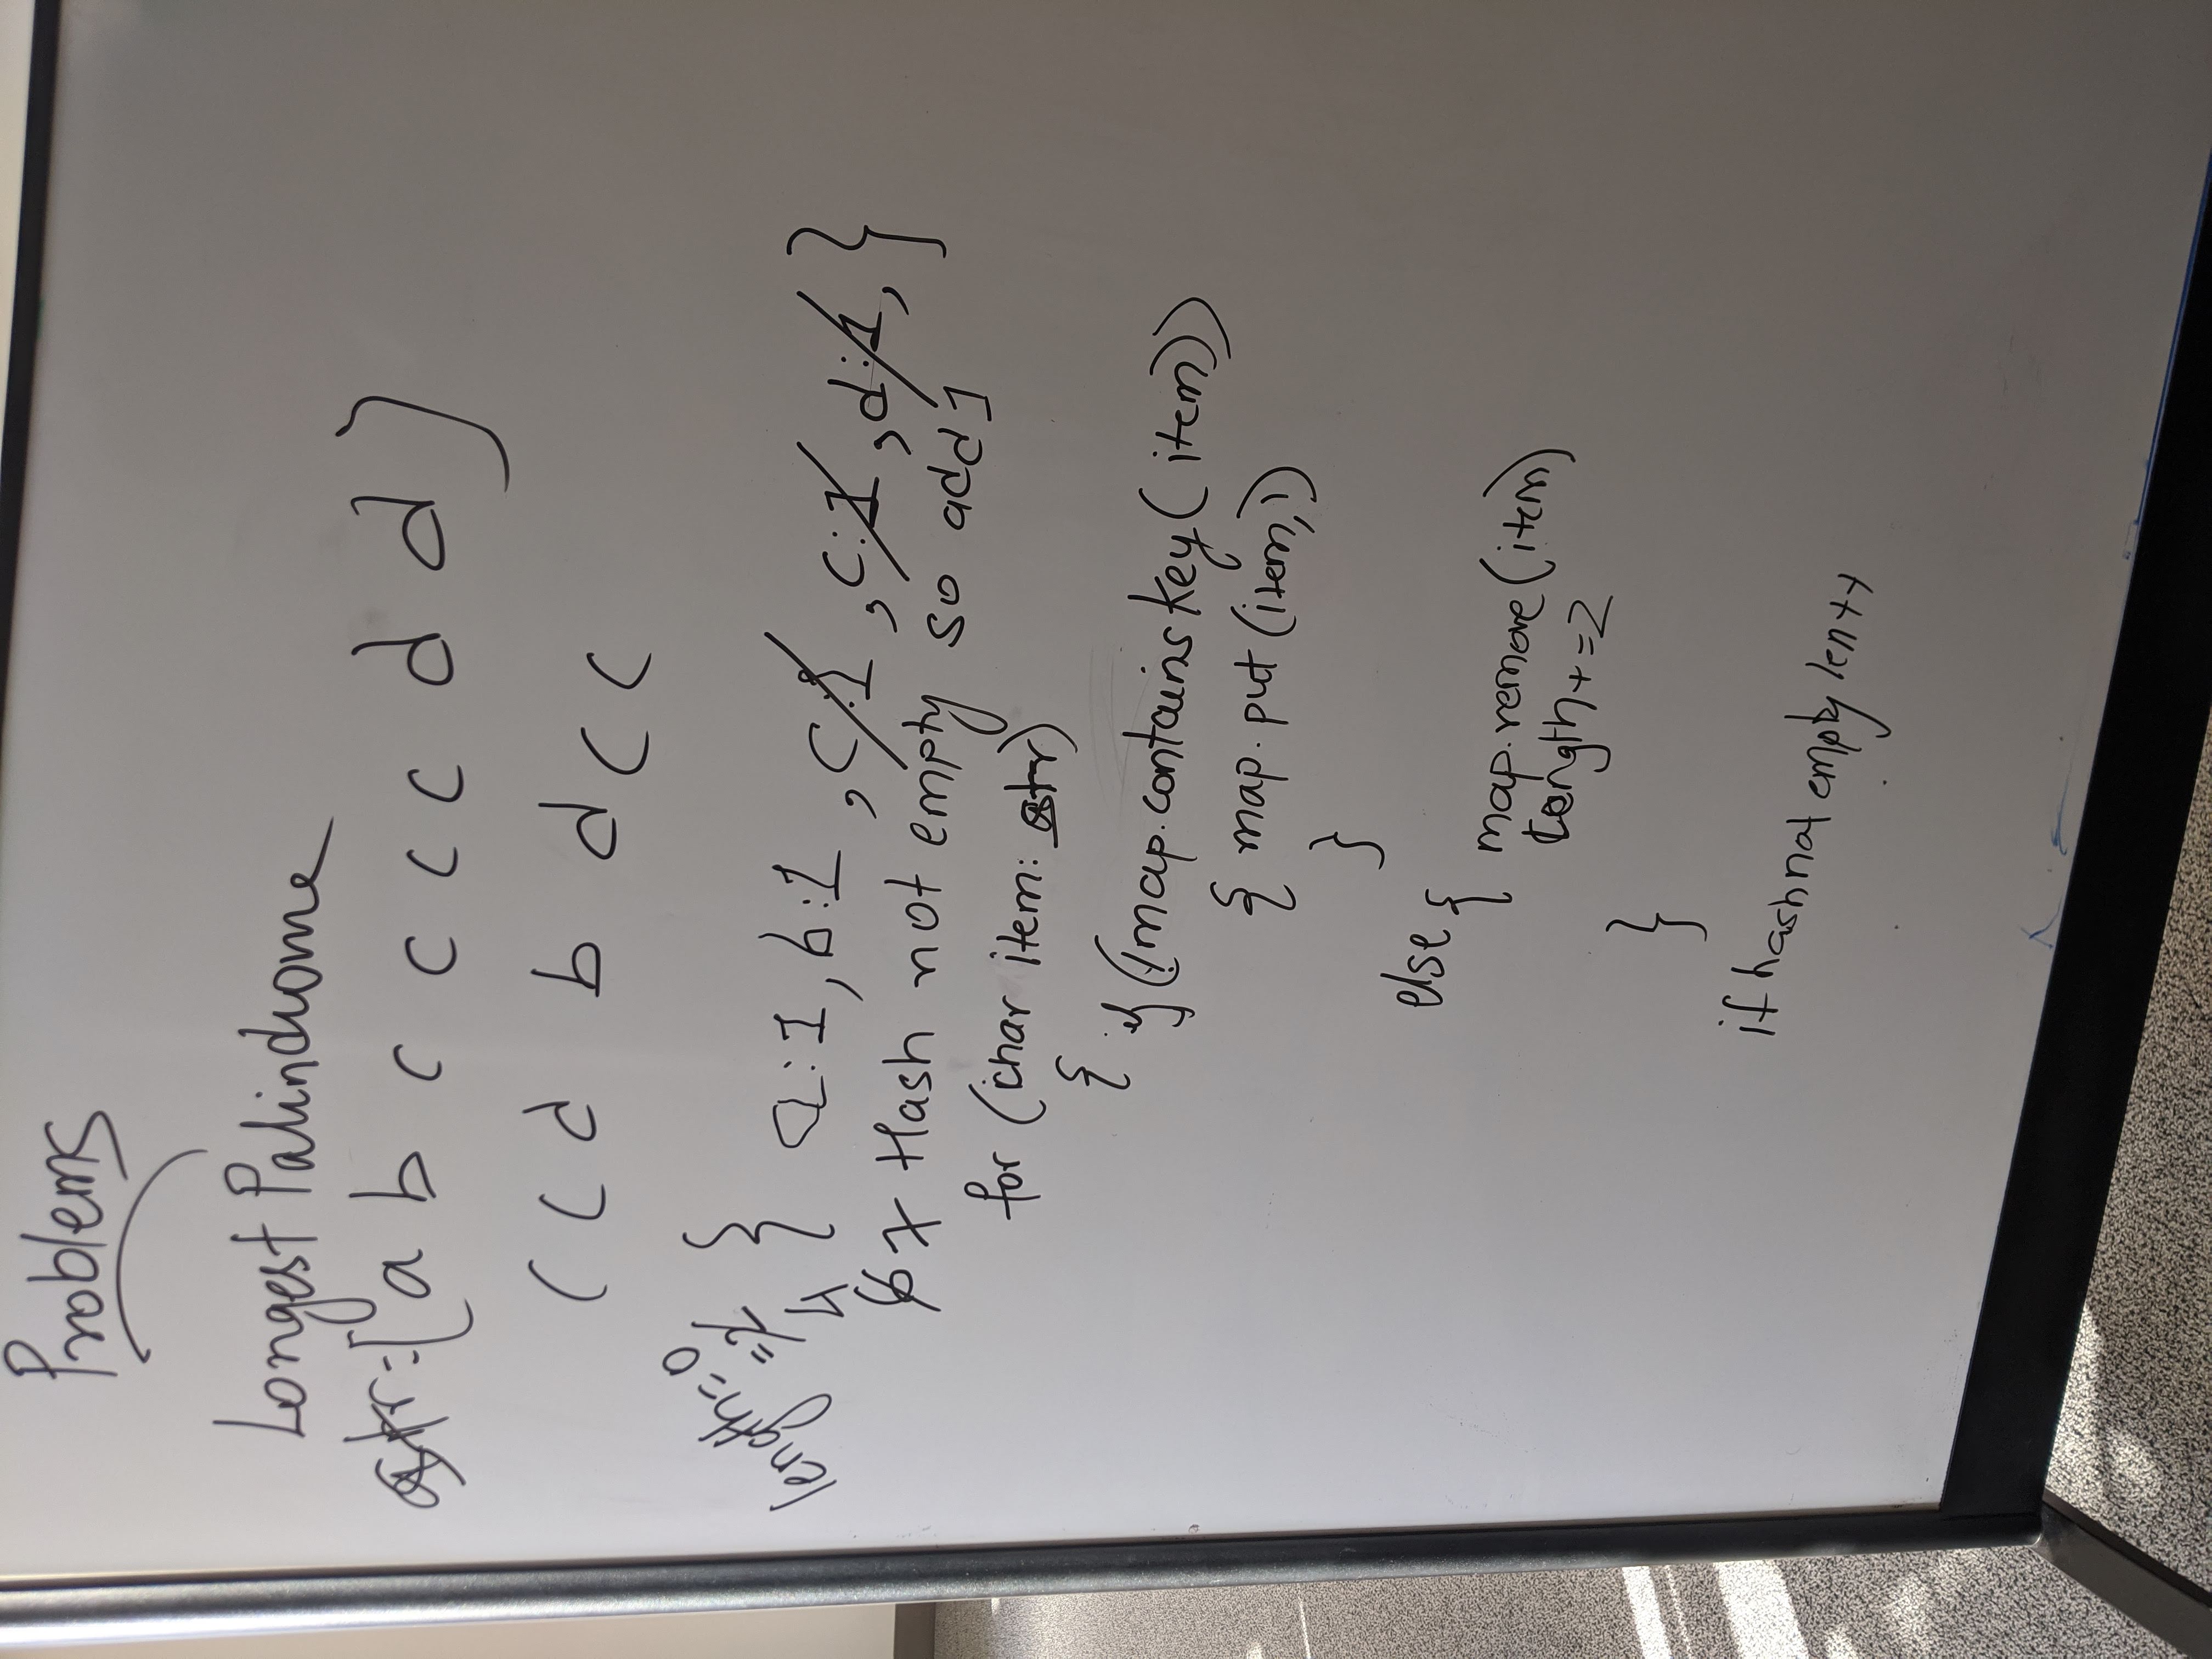 Problems
Longest Palindrome
str=[a b c c c c d d]
c c d b d c c
length=0
=2
4
{ a:1, b:1, c:1, c:1, d:1, }
6 7 Hash not empty so add 1
for (char item: str)
{ if (!map.containsKey(item))
{ map.put(item,1)
}
else {
map.remove(item)
length+=2
}
if hash not empty len++